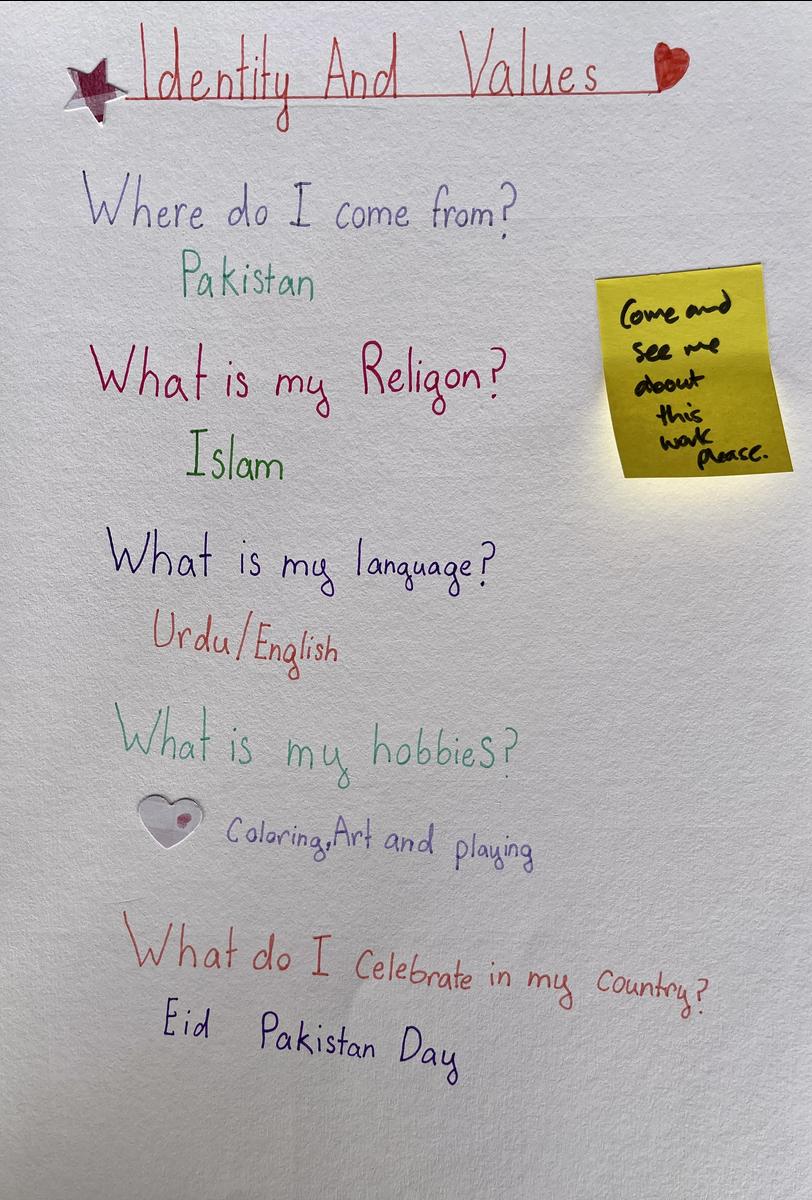 Identity And Values
Where do I come from?
Pakistan
What is my Religon?
Islam
What is my language?
Urdu/English
What is my hobbies?
Coloring,Art and playing
What do I Celebrate in my Country?
Eid Pakistan Day
Come and
see me
about
this
work
please.